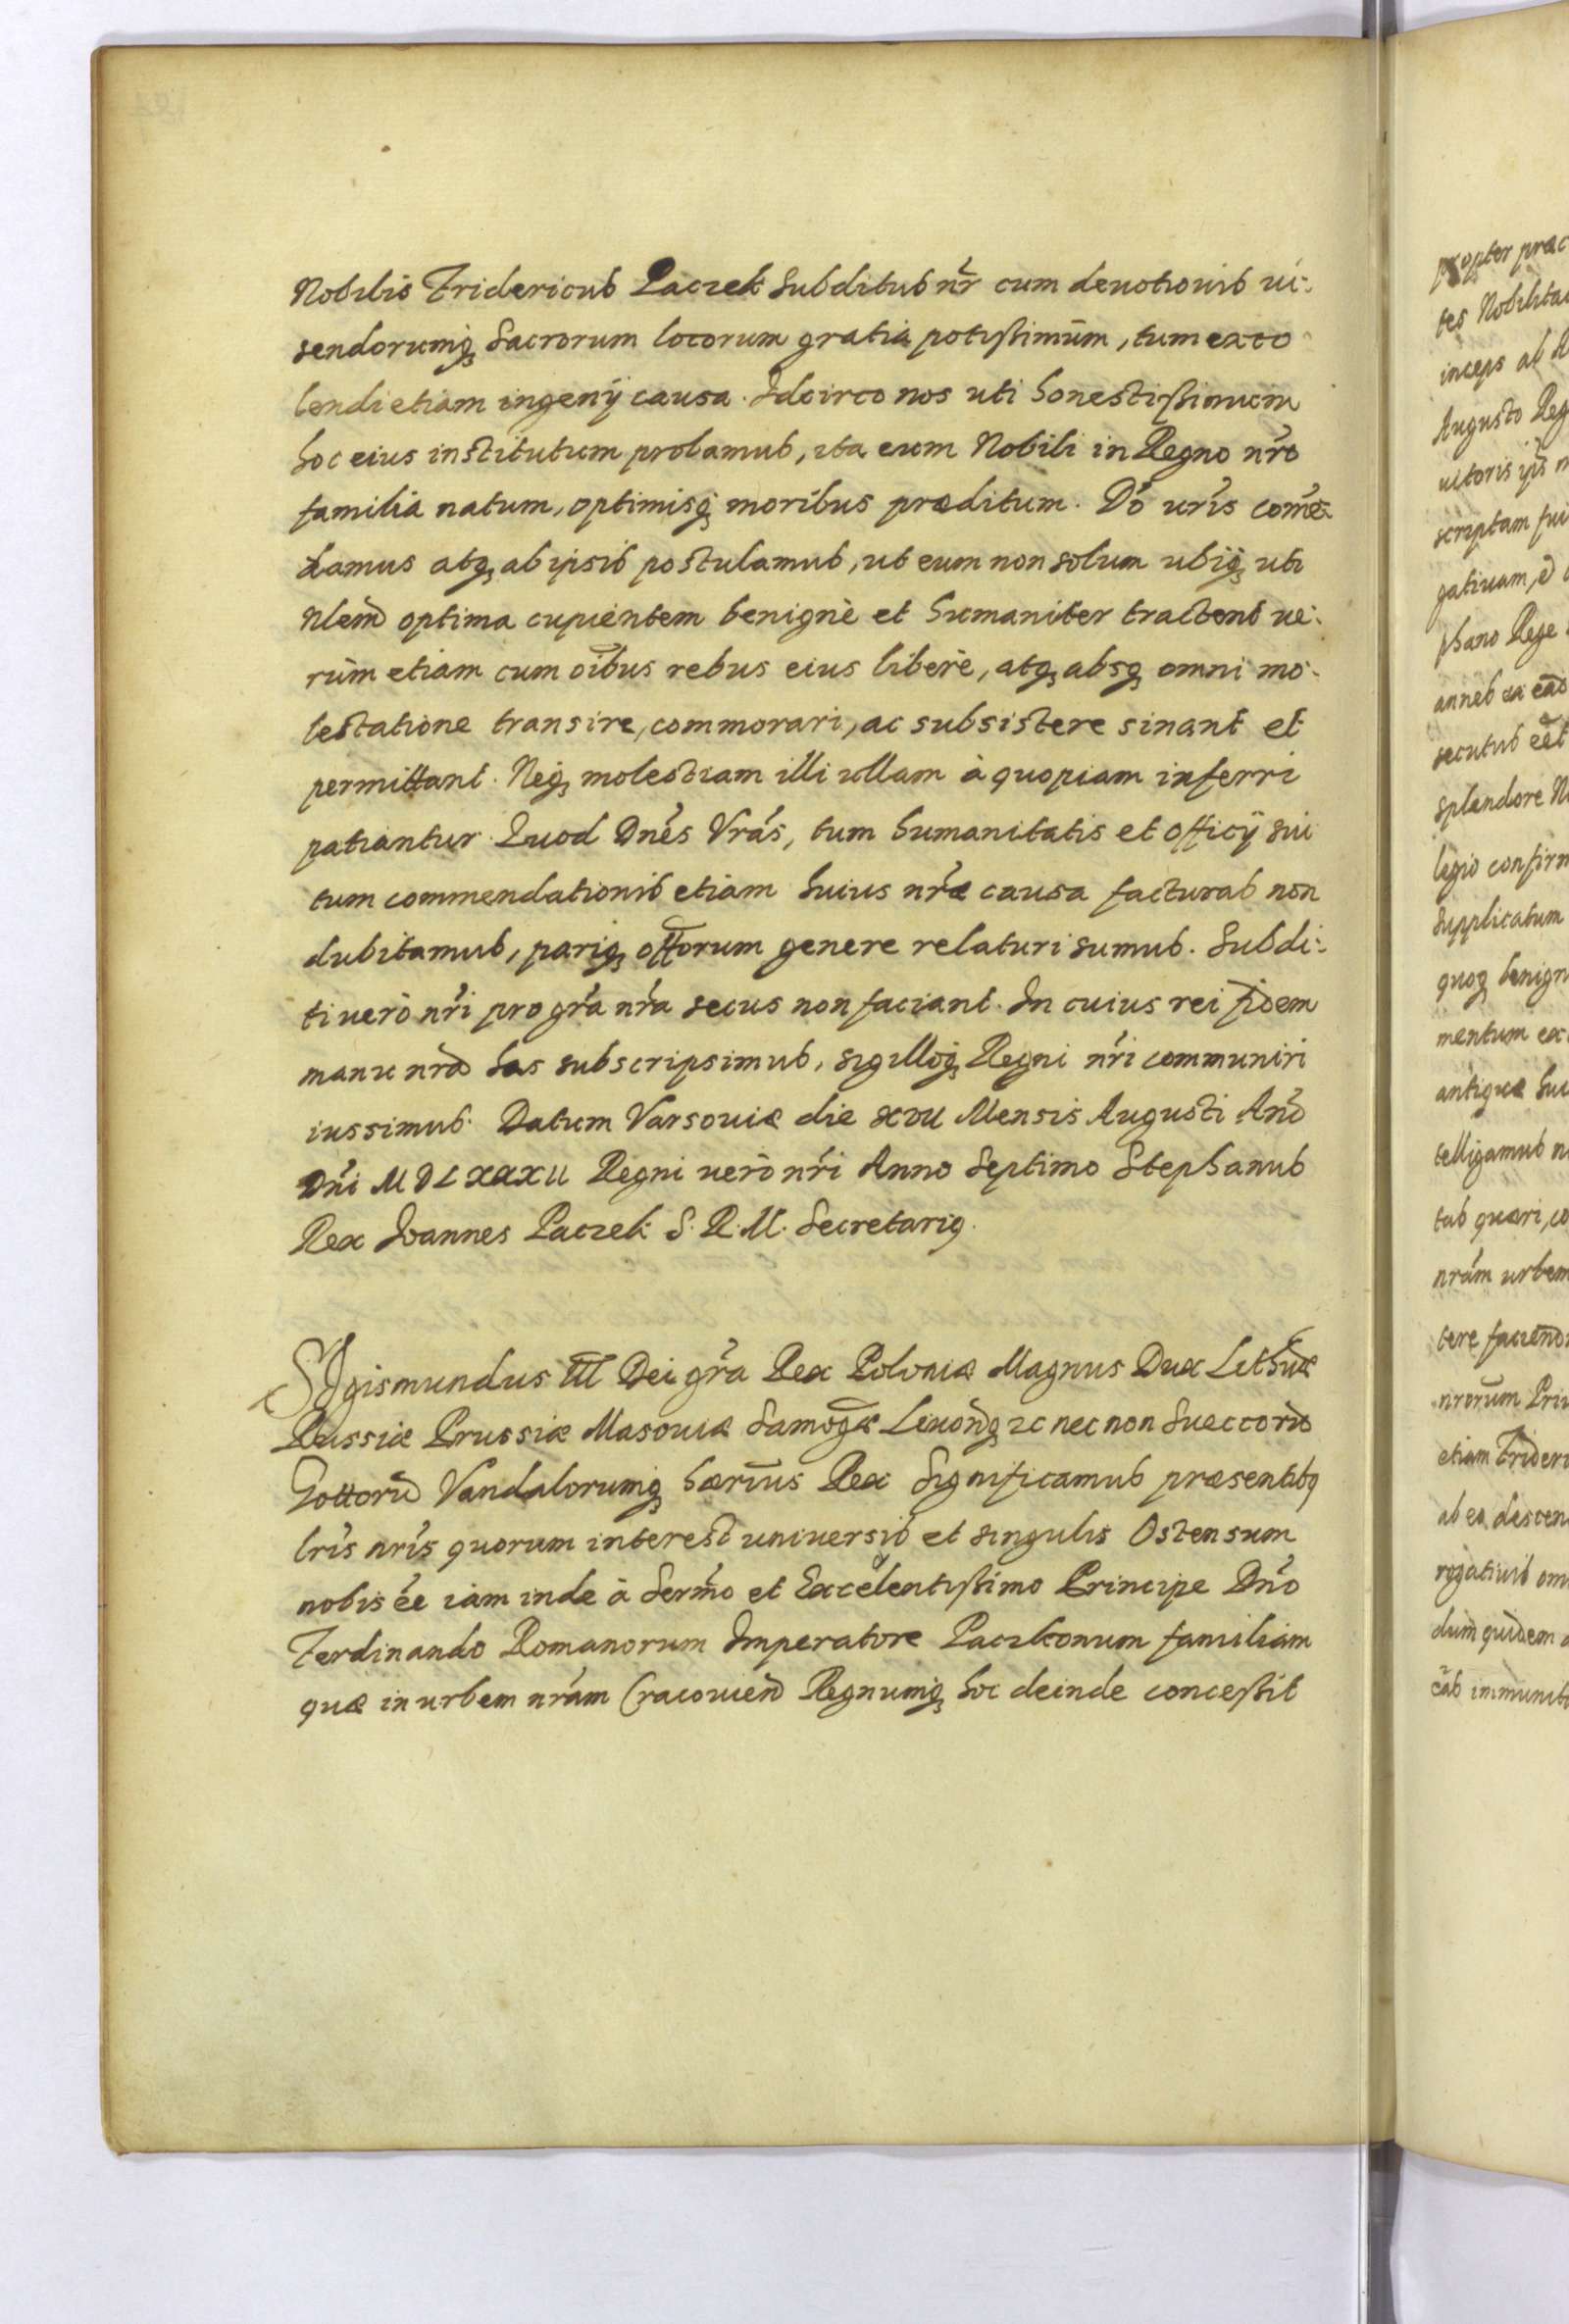 Nobilis Fridericus Paczek Subditus nr̃ cum deuotionis ui-
sendorumq̃ Sacrorum locorum gratia potissimum, tum exco
lendi etiam ingenij causa. Idcirco nos uti honestissimum
hoc eius institutum probamus, ita eum Nobili in Regno nr̃o
familia natum, optimisq̃ moribus præditum. Dõ ur̃is com̃e-
damus atq̃ ab ipsis postulamus, ut eum non solum ubiq̃ uti
Nlem̃ optima cupientem benignè et humaniter tractent ue-
rùm etiam cum oĩbus rebus eius liberè, atq̃ absq̃ omni mo-
lestatione transire, commorari, ac subsistere sinant et
permittant. Neq̃ molestiam illi ullam à quopiam inferri
patiantur. Quod Dnẽs Vrãs, tum humanitatis et officij sui
tum commendationis etiam huius nr̃æ causa facturas non
dubitamus, pariq̃ offõrum genere relaturi sumus. Subdi-
ti uerò nr̃i pro gr̃a nr̃a secus non faciant. In cuius rei fidem
manu nrã has subscripsimus, sigilloq̃ Regni nr̃i communiri
iussimus. Datum Varsouiæ die xvii Mensis Augusti Anõ
Dnĩ MDLXXXII Regni uerò nr̃i Anno Septimo Stephanus
Rex Joannes Paczek S. R. M. Secretariꝯ.
Sigismundus III Dei gr̃a Rex Poloniæ Magnus Dux Lithuæ̃
Russiæ Prussiæ Masouiæ Samog̃æ Liuon̄q̃ ꝛc nec non Sueccorũ
Gottorũ Vandalorumq̃ hæriũs Rex Significamus præsentibꝯ
lr̃is nr̃is quorum interest uniuersis et singulis Ostensum
nobis ẽe iam inde à Serm̃o et Excelentissimo Principe Dnõ
Ferdinando Romanorum Imperatore Paczkonum familiam
quæ in urbem nrãm Cracouien̄ Regnumq̃ hoc deinde concessit
propter præc
tes Nobilita
inceps ab
Augusto Reg
scriptam fui
phano Rege
splendore N
legio confirm
Supplicatum
quoq̃ benign
mentum ex
antiquæ
telligamus n
nrãm urbem
nrorũm Pri
etiam Frideri
ab ea descen
dum quidem
immunit